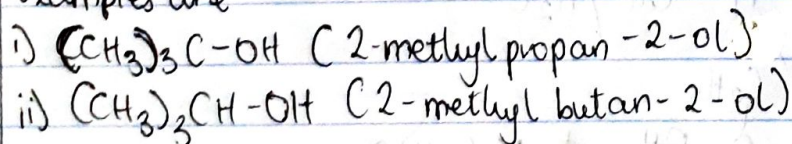 i) (CH₃)₃C-OH (2-methyl propan-2-ol)
ii) (CH₃)₃CH-OH (2-methyl butan-2-ol)